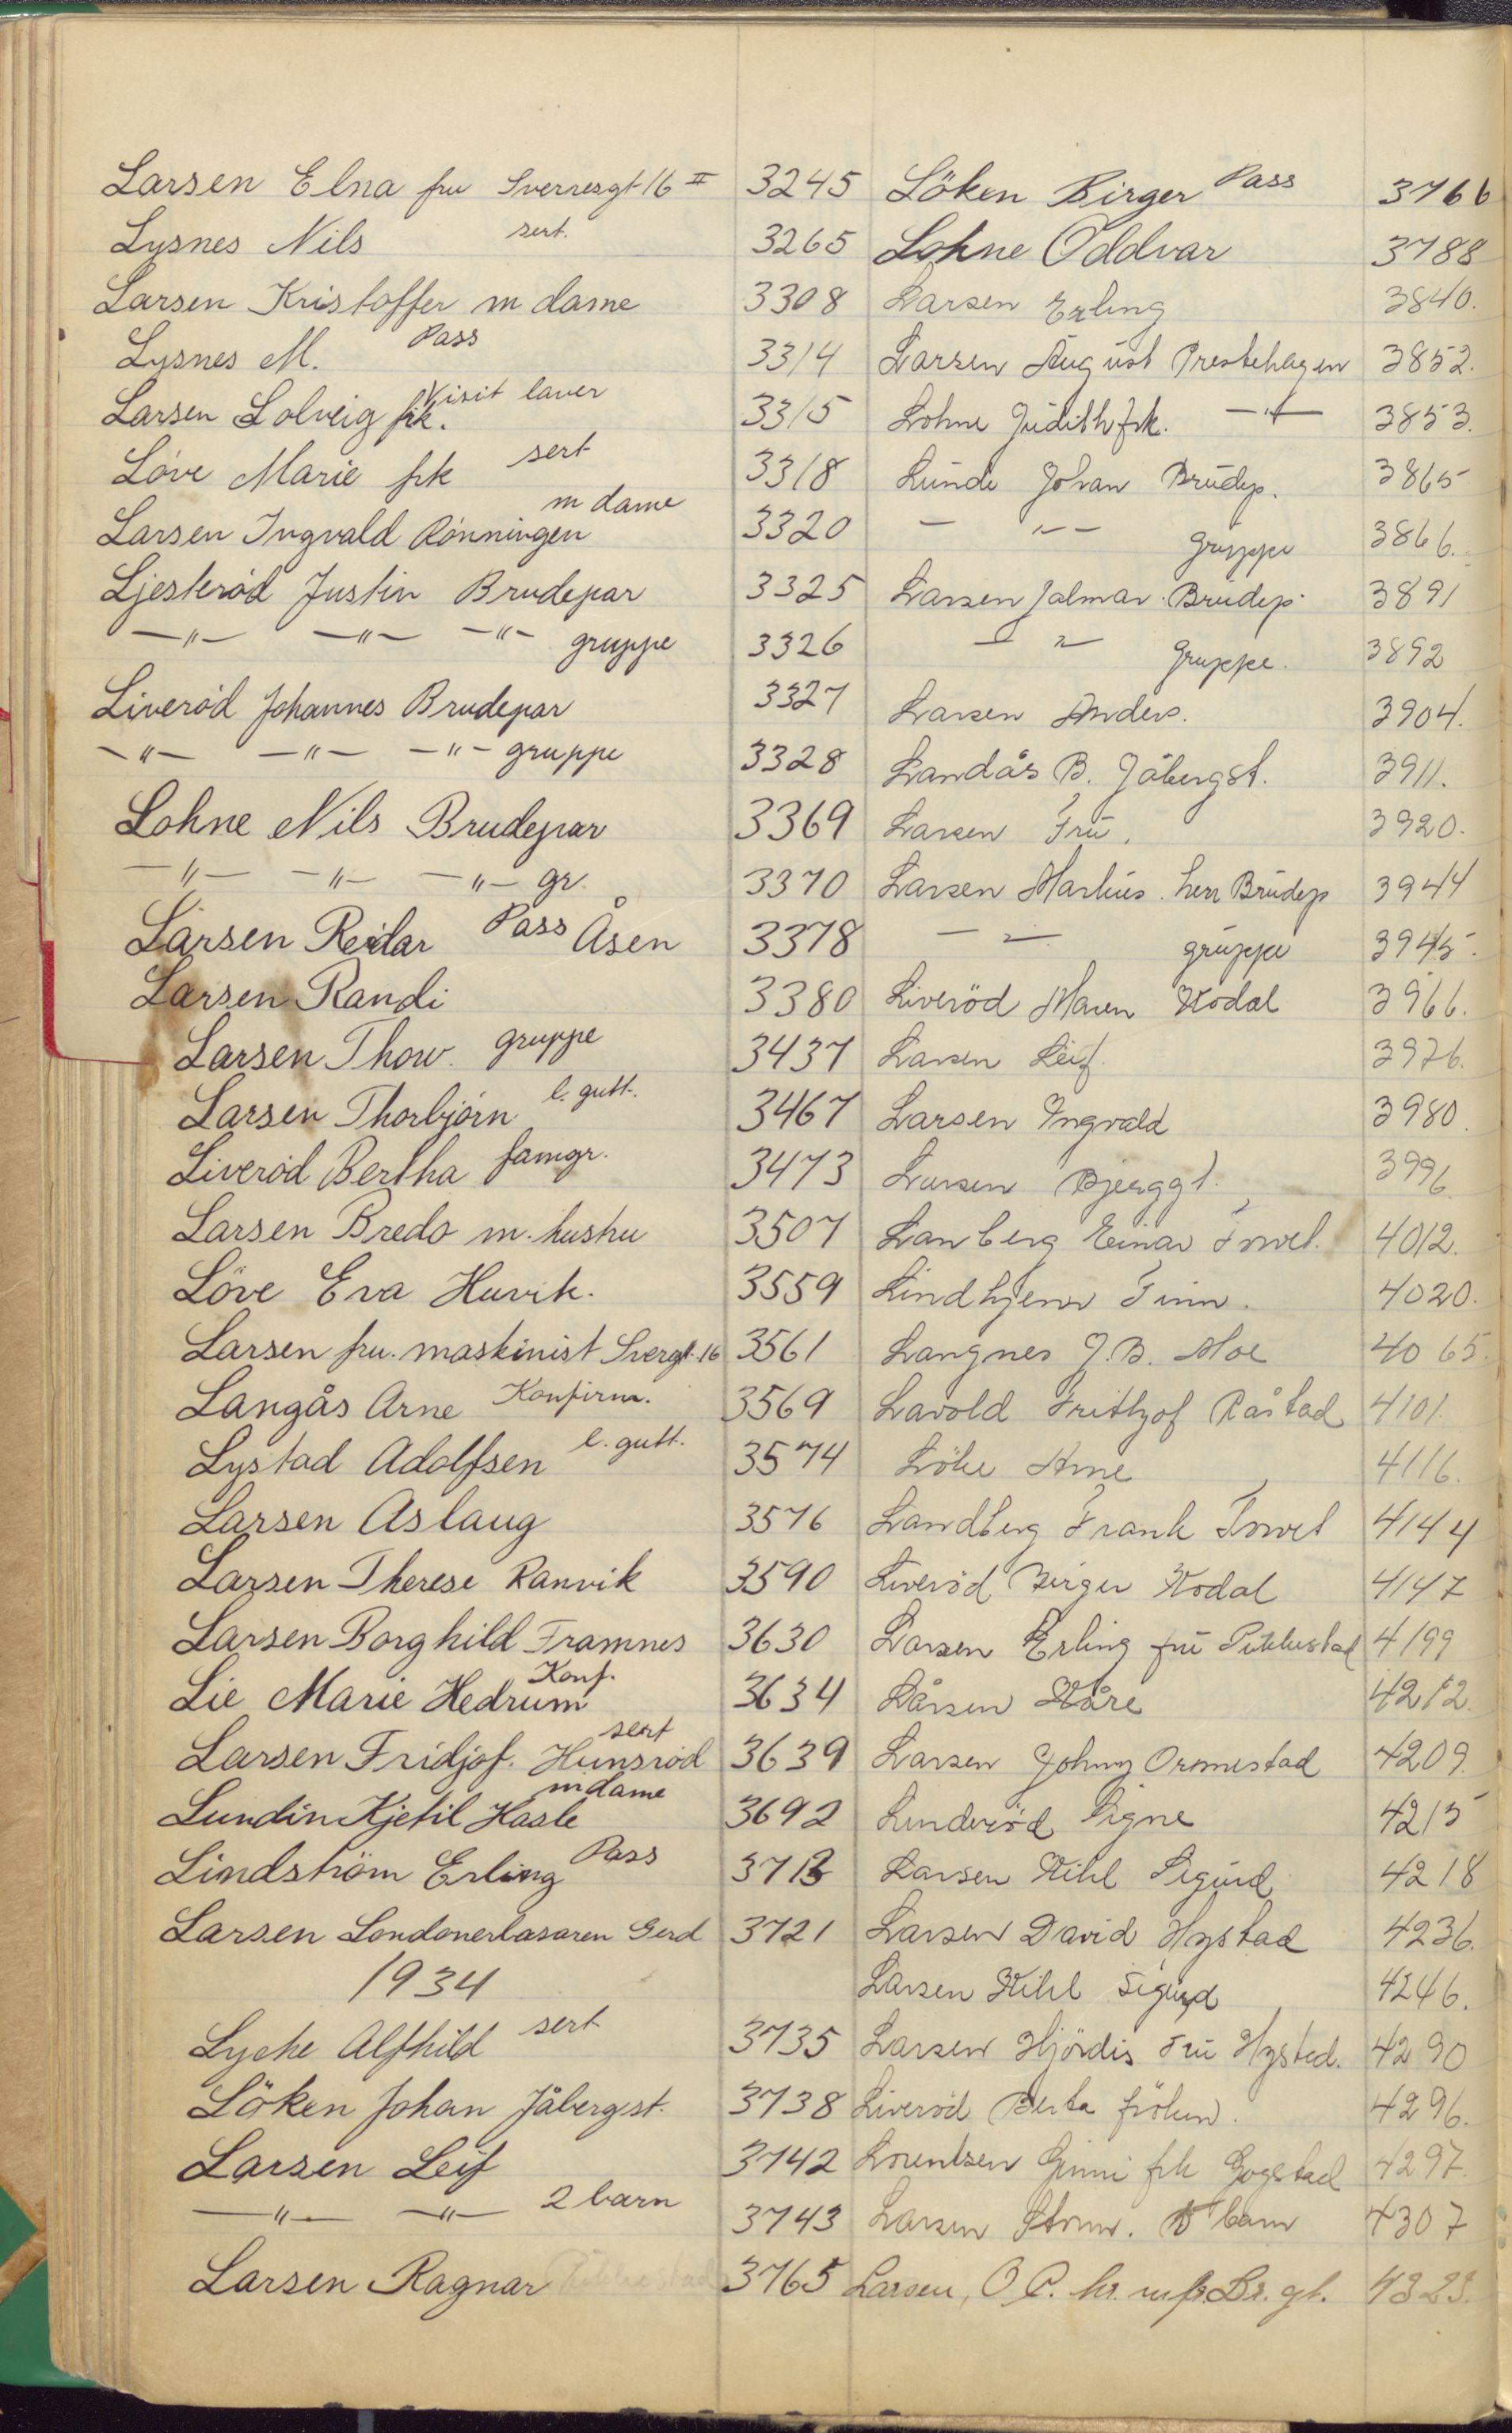 Larsen Elna fru Sverresgt 16 II 3245
Lysnes Nils sert. 3265
Larsen Kristoffer m dame 3308
Lysnes M. Pass 3314
Larsen Solveig frk. Visit laver 3315
Löve Marie frk sert 3318
Larsen Ingvald Rönningen m dame 3320
Ljesteröd Justin Brudepar 3325
—"— —"— —"— gruppe 3326
Liveröd Johannes Brudepar 3327
—"— —"— —"— gruppe 3328
Lohne Nils Brudepar 3369
—"— —"— —"— gr. 3370
Larsen Reidar Pass Åsen 3378
Larsen Randi 3380
Larsen Thow. gruppe 3437
Larsen Thorbjörn l. gutt. 3467
Liveröd Bertha famgr. 3473
Larsen Bredo m. hustru 3507
Löve Eva Huvik. 3559
Larsen fru. maskinist Svergt. 16 3561
Langås Arne Konfirm. 3569
Lystad Adolfsen l. gutt. 3574
Larsen Aslaug 3576
Larsen Therese Ranvik 3590
Larsen Borghild Framnes 3630
Lie Marie Hedrum Konf. 3634
Larsen Fridjof. Hunsröd sert 3639
Lundin Kjetil Hasle m dame 3692
Lindström Erling Pass 3713
Larsen Londonerbasaren Gerd 3721
1934
Lyche Alfhild sert 3735
Löken Johan Jåbergst. 3738
Larsen Leif 3742
—"— —"— 2 barn 3743
Larsen Ragnar 3765
Löken Birger Pass 3766
Lohne Oddvar 3788
Larsen Erling 3840.
Larsen August Prestehagen 3852.
Lohne Judith frk. —"— 3853.
Lunde Johan Brudep. 3865
— "— gruppe 3866.
Larsen Jalmar Brudep. 3891
— " — gruppe. 3892
Larsen Anders. 3904.
Landås B. Jåbergst. 3911.
Larsen Fru. 3920.
Larsen Markus herr Brudep 3944
— " — gruppe 3945.
Liveröd Maren Kodal 3966.
Larsen Leif. 3976.
Larsen Ingvald 3980.
Larsen Bjerggt. 3996.
Lanberg Einar 4012.
Lindhjem Finn. 4020.
Langnes J. B. Moe 4065.
Lavold Frithjof Råstad 4101
Löke Arne 4116.
Landberg Frank 4144
Liveröd Birger Kodal 4147
Larsen Erling fru 4199
Larsen Kåre 4212.
Larsen Johny Ormestad 4209.
Linderöd Signe 4215
Larsen Kihl Sigurd 4218
Larsen David Hystad 4236.
Larsen Kihl Sigurd 4246.
Larsen Hjördis Fru Hystad. 4290
Liveröd Berta fröken. 4296.
Lorentsen Ginni frk Gogstad 4297.
Larsen barn 4307
Larsen, O. P. hr. Br. gt. 4323.